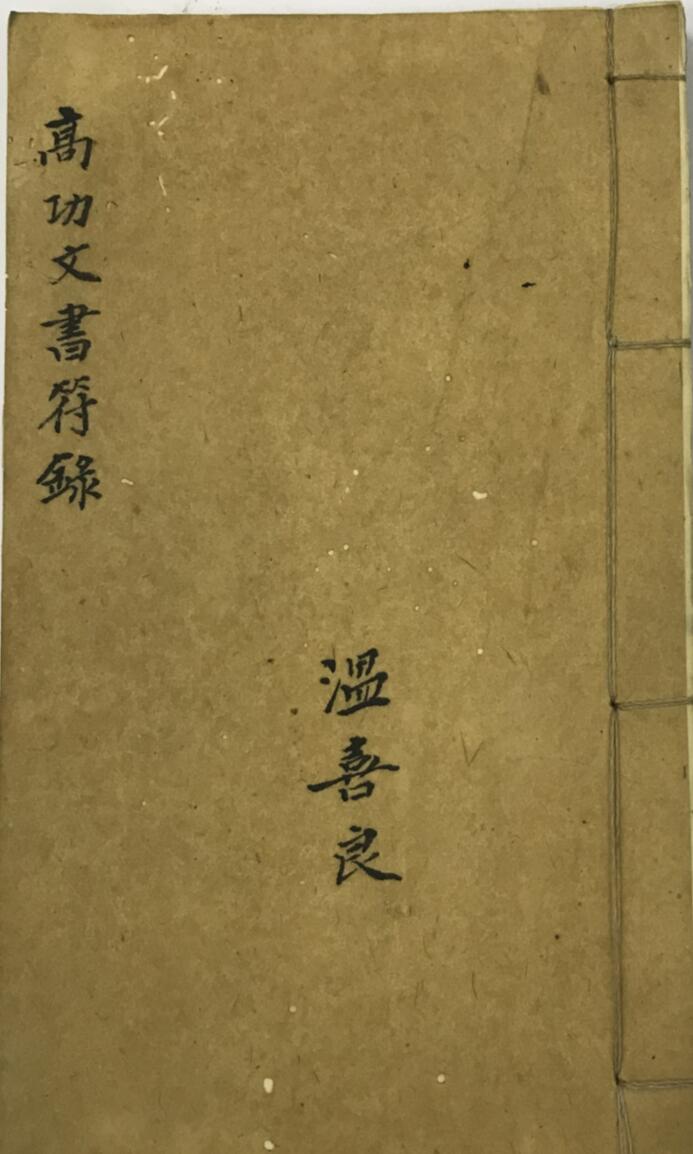 高功文書符錄
溫喜良